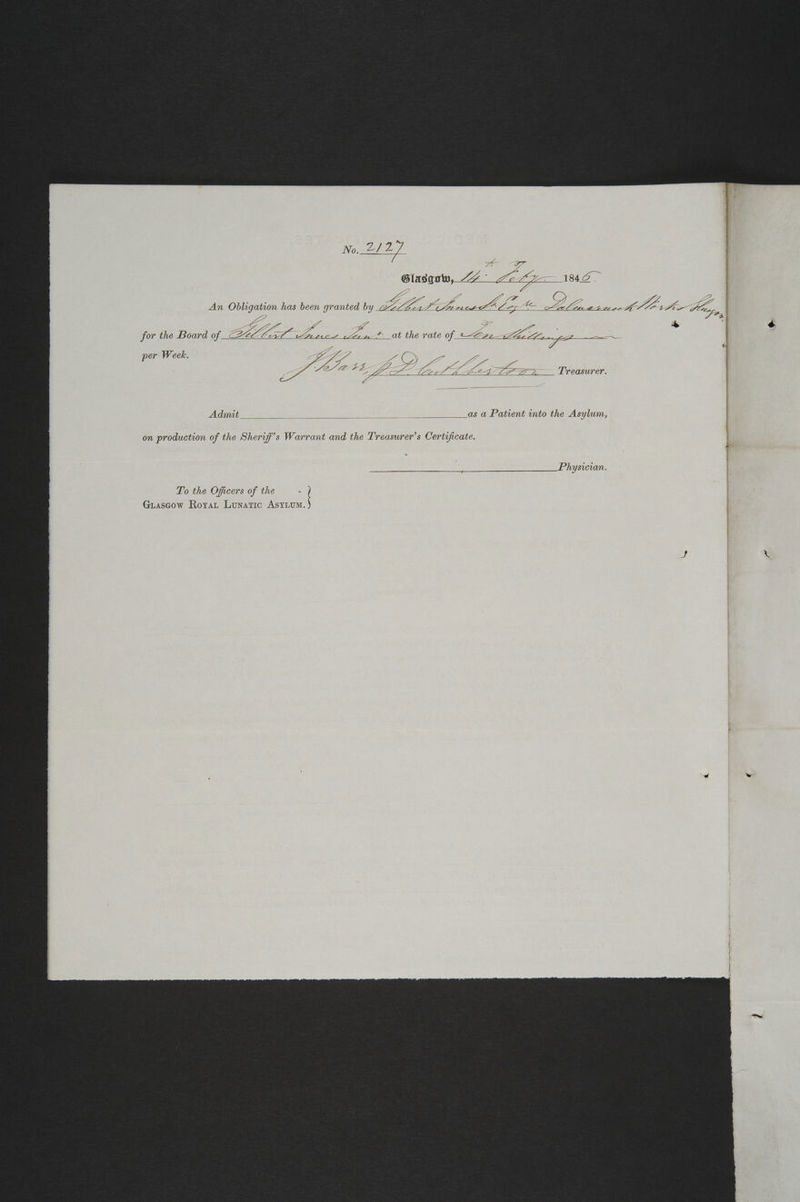 No. 2127
Glasgow, 14th Feby 1846
An Obligation has been granted by Gilbert Innes Sr Esqre Dalmarnock Works Glasgow
for the Board of Gilbert Innes Junr at the rate of Ten Shillings
per Week.
J Barr D. Cuthbertson Treasurer.
Admit as a Patient into the Asylum,
on production of the Sheriff's Warrant and the Treasurer's Certificate.
Physician.
To the Officers of the - }
Glasgow Royal Lunatic Asylum. }